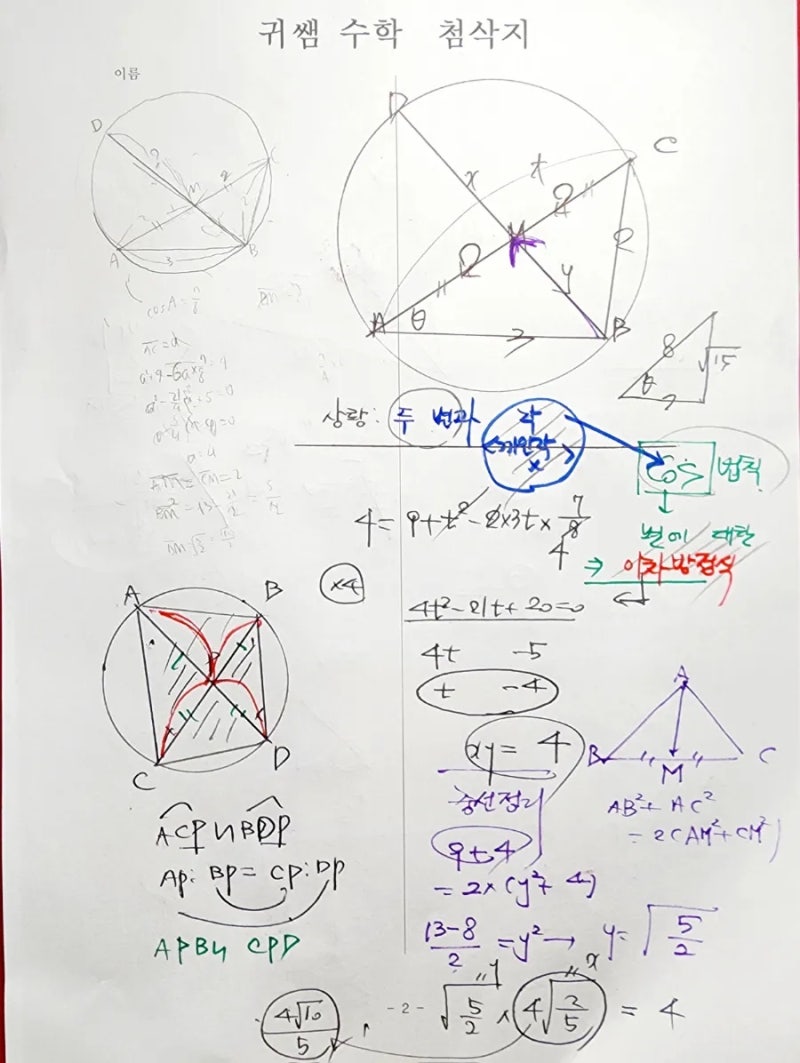 귀쌤 수학 첨삭지
이름
D
C
M
A
B
3
cosA = 7/8
D
C
x
t
2
M
2
2
y
A
θ
B
3
8
√15
θ
7
상황: 두 변과 각
끼인각
x
cos 법칙
변에 대한
⇒ 이차방정식
4 = 9 + t² - 2×3t × 7/8
4
×4
4t² - 21t + 20 = 0
4t -5
t -4
xy = 4
중선정리
9+4
= 2×(y²+4)
(13-8)/2 = y² → y = √(5/2)
A
B
P
C
D
ACP ∽ BDP
AP: BP = CP: DP
APB ∽ CPD
A
B
M
C
AB² + AC²
= 2(AM² + CM²)
y
x
√(5/2) × 4√(2/5) = 4
4√10/5
- 2 -